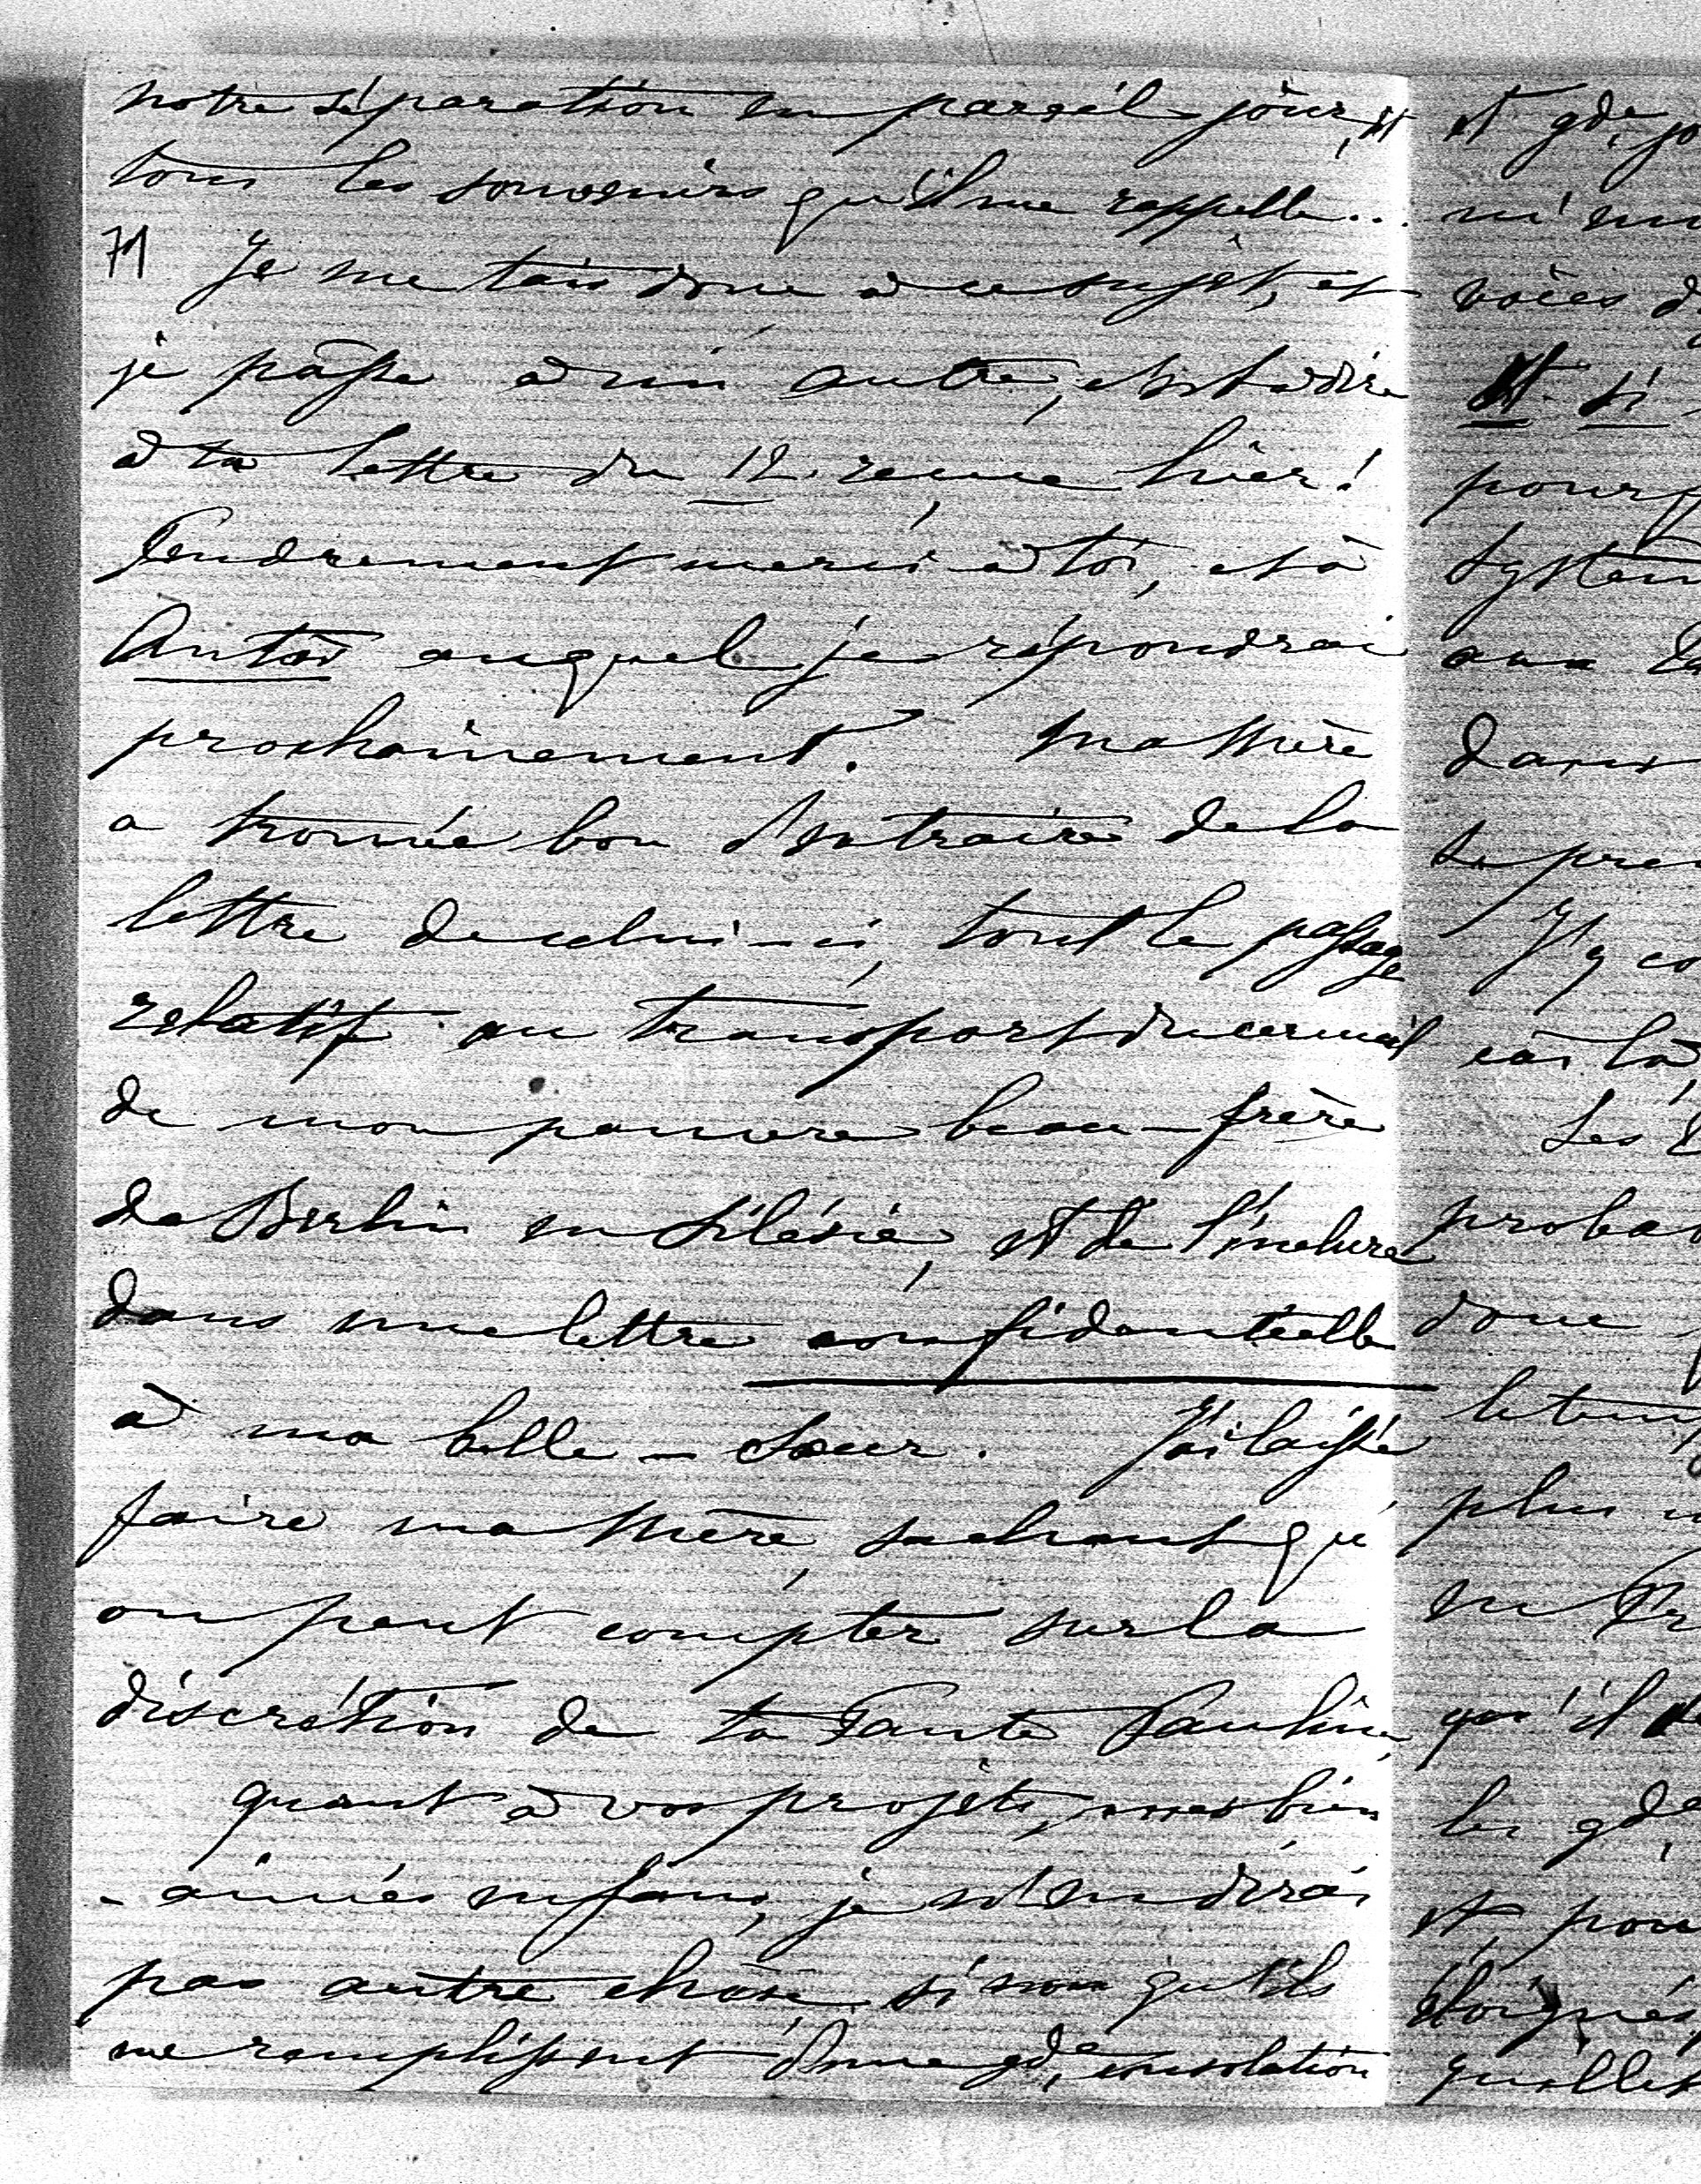 notre séparation en pareil jour, et
tous les souvenirs qu'il me rappelle...
71 Je me tais donc à ce sujet, et
je passe à un autre, c'est à dire
à ta lettre du 12. reçue hier!
Tendrement merci à toi, et à
Antoi auquel je répondrai
prochainement. Ma Mère
a trouvée bon d'extraire de la
lettre de celui-ci, tout le passage
relatif au transport du cercueil
de mon pauvre beau-frère
de Berlin en Silésie, et de l'inclure
dans une lettre confidentielle
à ma belle-Soeur. J'ai laissé
faire ma Mère, sachant qu'
on peut compter sur la
discrétion de ta Tante Pauline,
quant à vos projets, mes bien
-aimés enfans, je n'en dirai
pas autre chose, si non qu'ils
me remplissent d'une gde consolation
et gde
voies
et si
pour
aux
dans
J'y
car la
Les
donc
plus
en
qu'il
les gde
et, pour
éloignés,